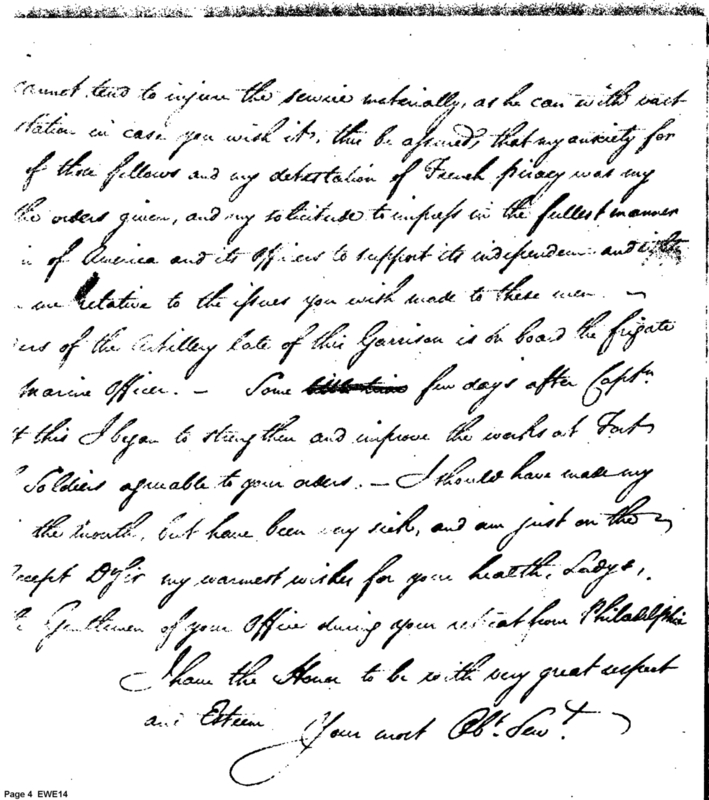 cannot tend to injure the service materially, as he can with
station in case you wish it, thus be assured, that my anxiety for
of those fellows and my detestation of French piracy was my
the orders given, and my solicitude to impress in the fullest manner
of America and its Officers to support its independence and
me relative to the issues you wish made to these men. —
of the Artillery late of this Garrison is on board the frigate
Marine Officer. — Some few days after Captn
this I began to strengthen and improve the works at Fort
Soldiers agreeable to your orders. — I should have made my
the Month, but have been very sick, and am just on the
Accept D Sir my warmest wishes for your health, Ladys,
Gentlemen of your Office during your retreat from Philadelphia
I have the Honor to be with very great respect
and Esteem Your most Obt. Servt.
Page 4 EWE14